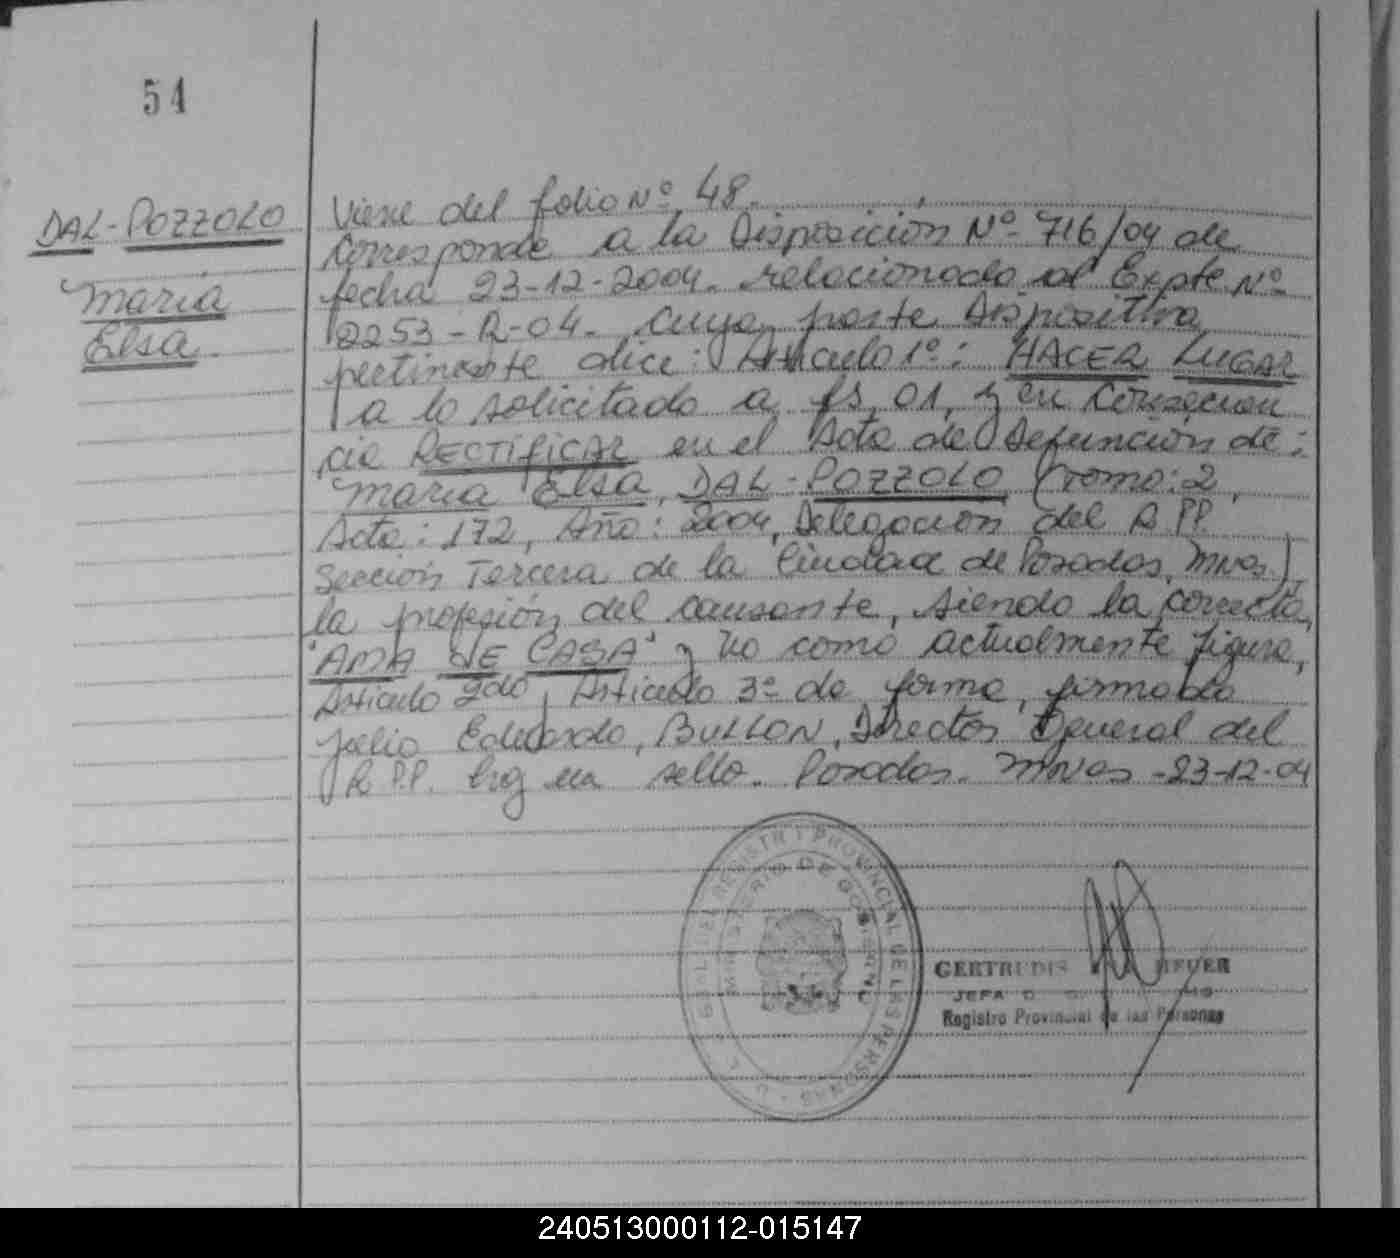 54
DAL-POZZOLO
Maria
Elsa.
Viene del folio Nº 48.
Corresponde a la Disposición Nº 716/04 de
fecha 23-12-2004. relacionado al Expte Nº
2253-R-04. Cuya parte Dispositiva
pertinente dice: Articulo 1º: HACER LUGAR
a lo solicitado a fs. 01, y en Consecuen
cia RECTIFICAR en el Acta de Defunción de:
Maria Elsa, DAL-POZZOLO (Tomo: 2,
Acta: 172, Año: 2004, Delegación del R.PP.
Sección Tercera de la Ciudad de Posadas, Mnes.)
la profesión del causante, siendo la correcta,
"AMA DE CASA" y no como actualmente figura,
Articulo 2do, Articulo 3º de forma, firmado
Julio Eduardo, BULLON, Director General del
R.P.P. hay un sello. Posadas. Mnes -23-12-04
REGISTR PROVINCIAL DE LAS PERSONAS
MINISTERIO DE GOBIERNO
GERTRUDIS
JEFA
Registro Provincial de las Personas
240513000112-015147